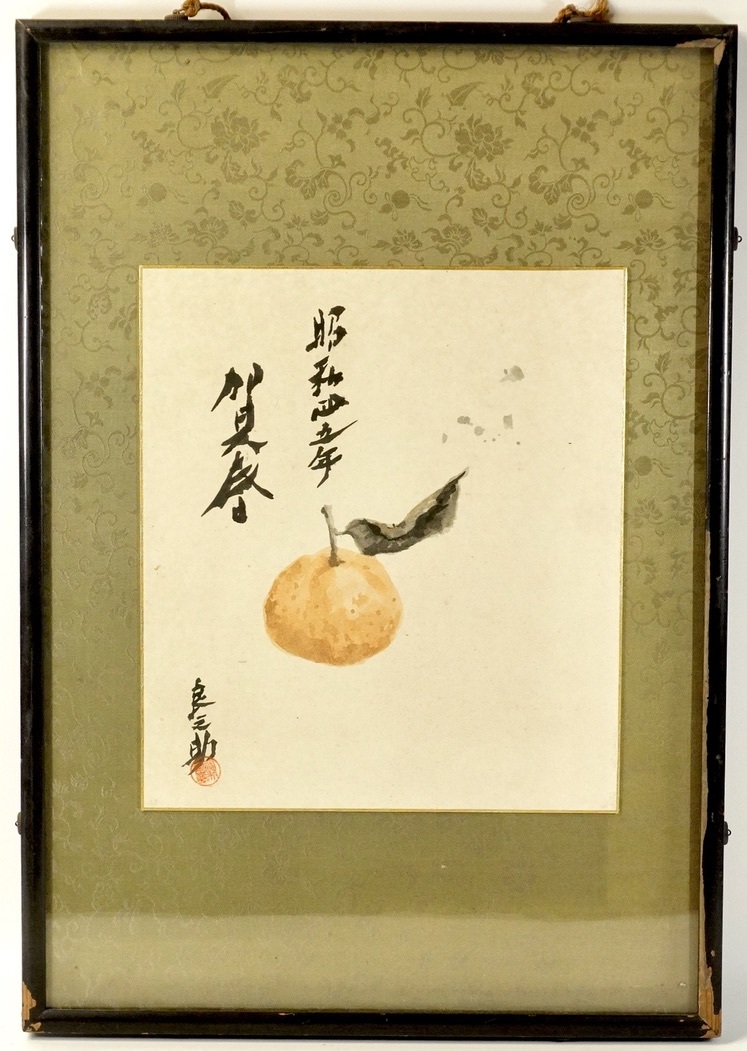 昭和四五年
賀春
良之助